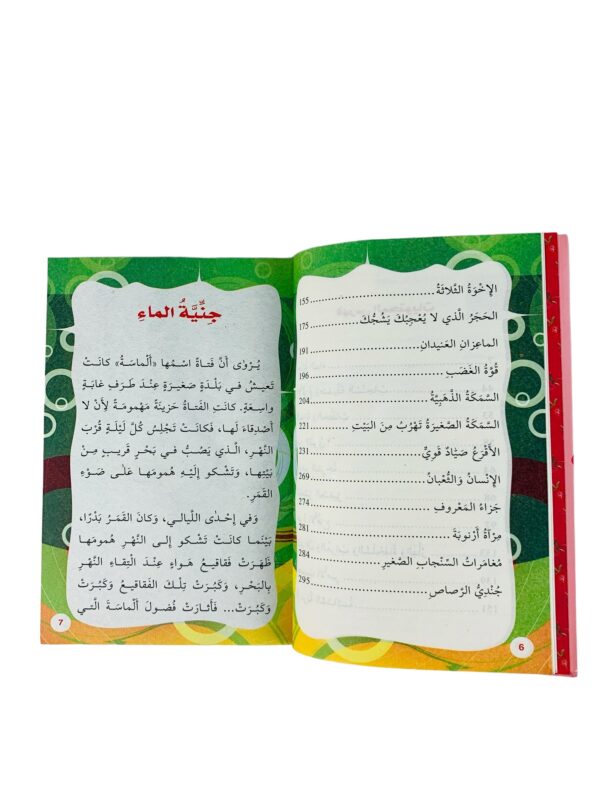 الإِخْوَةُ الثَّلاثَةُ ........ 155
الحَجَرُ الَّذي لا يُعْجِبُكَ يَشُجُّكَ ........ 175
الماعِزانِ العَنيدانِ ........ 191
قُوَّةُ الغَضَبِ ........ 196
السَّمَكَةُ الذَّهَبِيَّةُ ........ 204
السَّمَكَةُ الصَّغيرَةُ تَهْرُبُ مِنَ البَيْتِ ........ 221
الأَقْرَعُ صَيَّادٌ قَوِيٌّ ........ 231
الإِنْسانُ والثُّعْبانُ ........ 269
جَزاءُ المَعْروفِ ........ 274
مِرْآةُ أَرْنوبَةَ ........ 281
مُغامَراتُ السِّنْجابِ الصَّغيرِ ........ 284
جُنْدِيُّ الرَّصاصِ ........ 295
6
جِنِّيَّةُ الماءِ
يُرْوى أَنَّ فَتاةً اسْمُها «أَلْماسَةُ» كانَتْ
تَعيشُ في بَلْدَةٍ صَغيرَةٍ عِنْدَ طَرَفِ غابَةٍ
واسِعَةٍ. كانَتِ الفَتاةُ حَزينَةً مَهْمومَةً لِأَنْ لا
أَصْدِقاءَ لَها، فَكانَتْ تَجْلِسُ كُلَّ لَيْلَةٍ قُرْبَ
النَّهْرِ، الَّذي يَصُبُّ في بَحْرٍ قَريبٍ مِنْ
بَيْتِها، وَتَشْكو إِلَيْهِ هُمومَها عَلى ضَوْءِ
القَمَرِ.
وَفي إِحْدى اللَّيالي، وَكانَ القَمَرُ بَدْرًا،
بَيْنَما كانَتْ تَشْكو إِلى النَّهْرِ هُمومَها
ظَهَرَتْ فَقاقيعُ هَواءٍ عِنْدَ الْتِقاءِ النَّهْرِ
بِالبَحْرِ، وَكَبُرَتْ تِلْكَ الفَقاقيعُ وَكَبُرَتْ
وَكَبُرَتْ... فَأَثارَتْ فُضولَ أَلْماسَةَ الَّتي
7